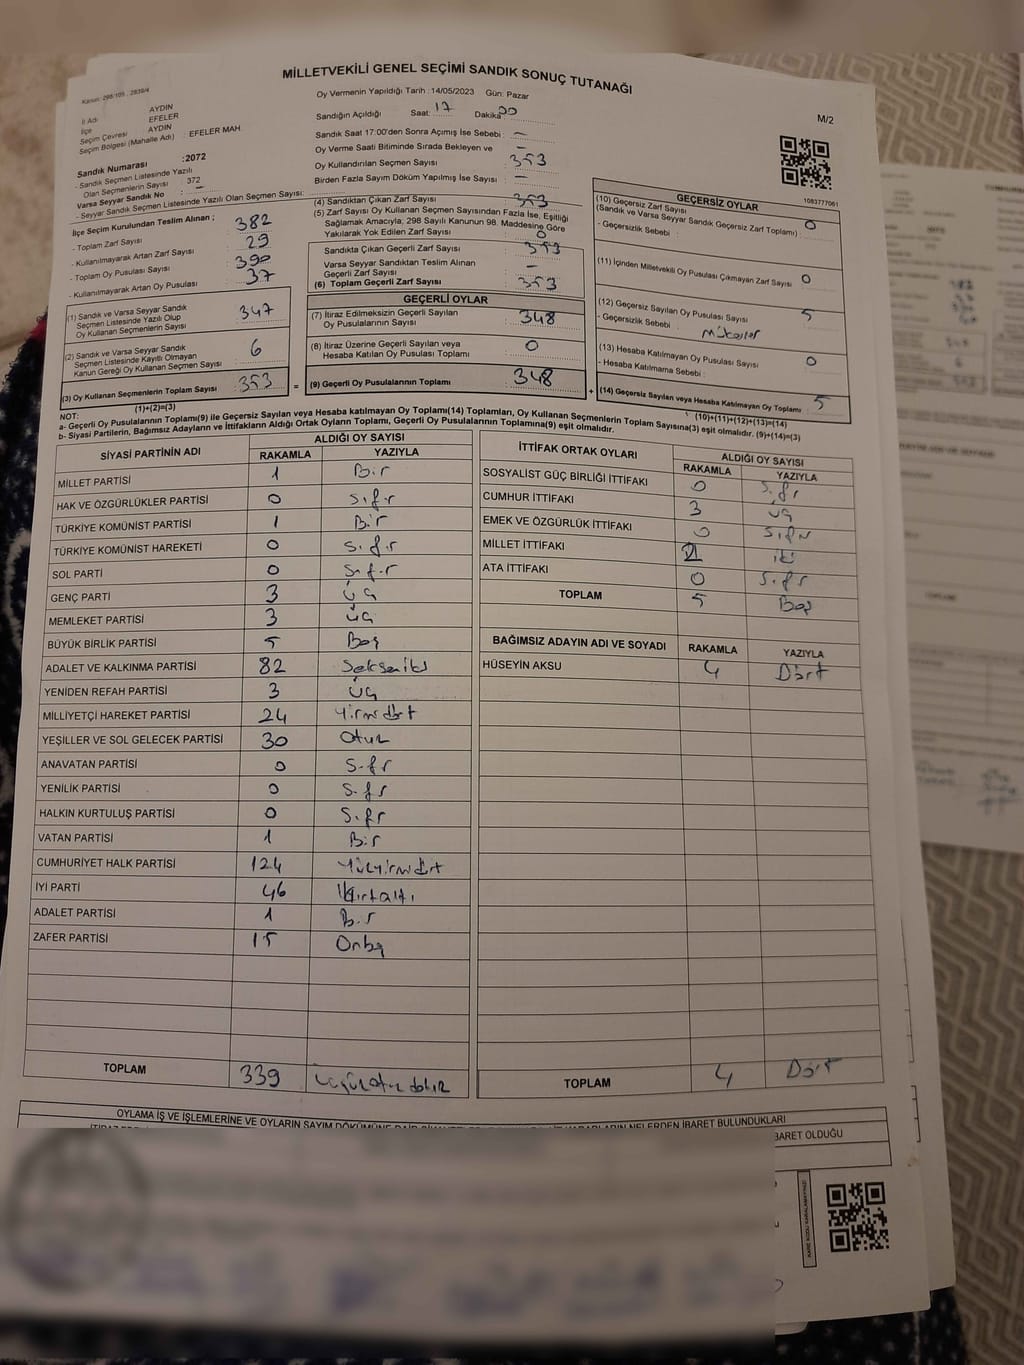 MİLLETVEKİLİ GENEL SEÇİMİ SANDIK SONUÇ TUTANAĞI
Kanun: 298/105 , 2839/4
İl Adı AYDIN
İlçe EFELER
Seçim Çevresi AYDIN
Seçim Bölgesi (Mahalle Adı) : EFELER MAH
Sandık Numarası :2072
- Sandık Seçmen Listesinde Yazılı
Olan Seçmenlerin Sayısı : 372
Varsa Seyyar Sandık No : –
- Seyyar Sandık Seçmen Listesinde Yazılı Olan Seçmen Sayısı:
Oy Vermenin Yapıldığı Tarih : 14/05/2023 Gün: Pazar
Sandığın Açıldığı Saat: 17 Dakika 00
Sandık Saat 17:00'den Sonra Açılmış İse Sebebi : –
Oy Verme Saati Bitiminde Sırada Bekleyen ve –
Oy Kullandırılan Seçmen Sayısı : 353
Birden Fazla Sayım Döküm Yapılmış İse Sayısı : –
M/2
1083777061
İlçe Seçim Kurulundan Teslim Alınan ;
- Toplam Zarf Sayısı : 382
- Kullanılmayarak Artan Zarf Sayısı : 29
- Toplam Oy Pusulası Sayısı : 390
- Kullanılmayarak Artan Oy Pusulası : 37
(1) Sandık ve Varsa Seyyar Sandık
Seçmen Listesinde Yazılı Olup
Oy Kullanan Seçmenlerin Sayısı : 347
(2) Sandık ve Varsa Seyyar Sandık
Seçmen Listesinde Kayıtlı Olmayan
Kanun Gereği Oy Kullanan Seçmen Sayısı : 6
(3) Oy Kullanan Seçmenlerin Toplam Sayısı : 353
(1)+(2)=(3)
(4) Sandıktan Çıkan Zarf Sayısı : 353
(5) Zarf Sayısı Oy Kullanan Seçmen Sayısından Fazla İse, Eşitliği
Sağlamak Amacıyla, 298 Sayılı Kanunun 98. Maddesine Göre
Yakılarak Yok Edilen Zarf Sayısı : 0
Sandıkta Çıkan Geçerli Zarf Sayısı : 353
Varsa Seyyar Sandıktan Teslim Alınan
Geçerli Zarf Sayısı : –
(6) Toplam Geçerli Zarf Sayısı : 353
GEÇERLİ OYLAR
(7) İtiraz Edilmeksizin Geçerli Sayılan
Oy Pusulalarının Sayısı : 348
(8) İtiraz Üzerine Geçerli Sayılan veya
Hesaba Katılan Oy Pusulası Toplamı : 0
= (9) Geçerli Oy Pusulalarının Toplamı : 348
GEÇERSİZ OYLAR
(10) Geçersiz Zarf Sayısı
(Sandık ve Varsa Seyyar Sandık Geçersiz Zarf Toplamı) : 0
- Geçersizlik Sebebi :
(11) İçinden Milletvekili Oy Pusulası Çıkmayan Zarf Sayısı : 0
(12) Geçersiz Sayılan Oy Pusulası Sayısı : 5
- Geçersizlik Sebebi :
(13) Hesaba Katılmayan Oy Pusulası Sayısı : 0
- Hesaba Katılmama Sebebi :
+ (14) Geçersiz Sayılan veya Hesaba Katılmayan Oy Toplamı : 5
(10)+(11)+(12)+(13)=(14)
NOT:
a- Geçerli Oy Pusulalarının Toplamı(9) ile Geçersiz Sayılan veya Hesaba katılmayan Oy Toplamı(14) Toplamları, Oy Kullanan Seçmenlerin Toplam Sayısına(3) eşit olmalıdır. (9)+(14)=(3)
b- Siyasi Partilerin, Bağımsız Adayların ve İttifakların Aldığı Ortak Oyların Toplamı, Geçerli Oy Pusulalarının Toplamına(9) eşit olmalıdır.
SİYASİ PARTİNİN ADI ALDIĞI OY SAYISI
RAKAMLA YAZIYLA
MİLLET PARTİSİ 1 Bir
HAK VE ÖZGÜRLÜKLER PARTİSİ 0 Sıfır
TÜRKİYE KOMÜNİST PARTİSİ 1 Bir
TÜRKİYE KOMÜNİST HAREKETİ 0 Sıfır
SOL PARTİ 0 Sıfır
GENÇ PARTİ 3 Üç
MEMLEKET PARTİSİ 3 Üç
BÜYÜK BİRLİK PARTİSİ 5 Beş
ADALET VE KALKINMA PARTİSİ 82 Seksen iki
YENİDEN REFAH PARTİSİ 3 Üç
MİLLİYETÇİ HAREKET PARTİSİ 24 Yirmi dört
YEŞİLLER VE SOL GELECEK PARTİSİ 30 Otuz
ANAVATAN PARTİSİ 0 Sıfır
YENİLİK PARTİSİ 0 Sıfır
HALKIN KURTULUŞ PARTİSİ 0 Sıfır
VATAN PARTİSİ 1 Bir
CUMHURİYET HALK PARTİSİ 124 Yüzyirmidört
İYİ PARTİ 46 Kırkaltı
ADALET PARTİSİ 1 Bir
ZAFER PARTİSİ 15 Onbeş
TOPLAM 339 Üçyüzotuzdokuz
İTTİFAK ORTAK OYLARI ALDIĞI OY SAYISI
RAKAMLA YAZIYLA
SOSYALİST GÜÇ BİRLİĞİ İTTİFAKI 0 Sıfır
CUMHUR İTTİFAKI 3 Üç
EMEK VE ÖZGÜRLÜK İTTİFAKI 0 Sıfır
MİLLET İTTİFAKI 2 iki
ATA İTTİFAKI 0 Sıfır
TOPLAM 5 Beş
BAĞIMSIZ ADAYIN ADI VE SOYADI RAKAMLA YAZIYLA
HÜSEYİN AKSU 4 Dört
TOPLAM 4 Dört
OYLAMA İŞ VE İŞLEMLERİNE VE OYLARIN SAYIM DÖKÜMÜNE DAİR NELERDEN İBARET BULUNDUKLARI
BARET OLDUĞU